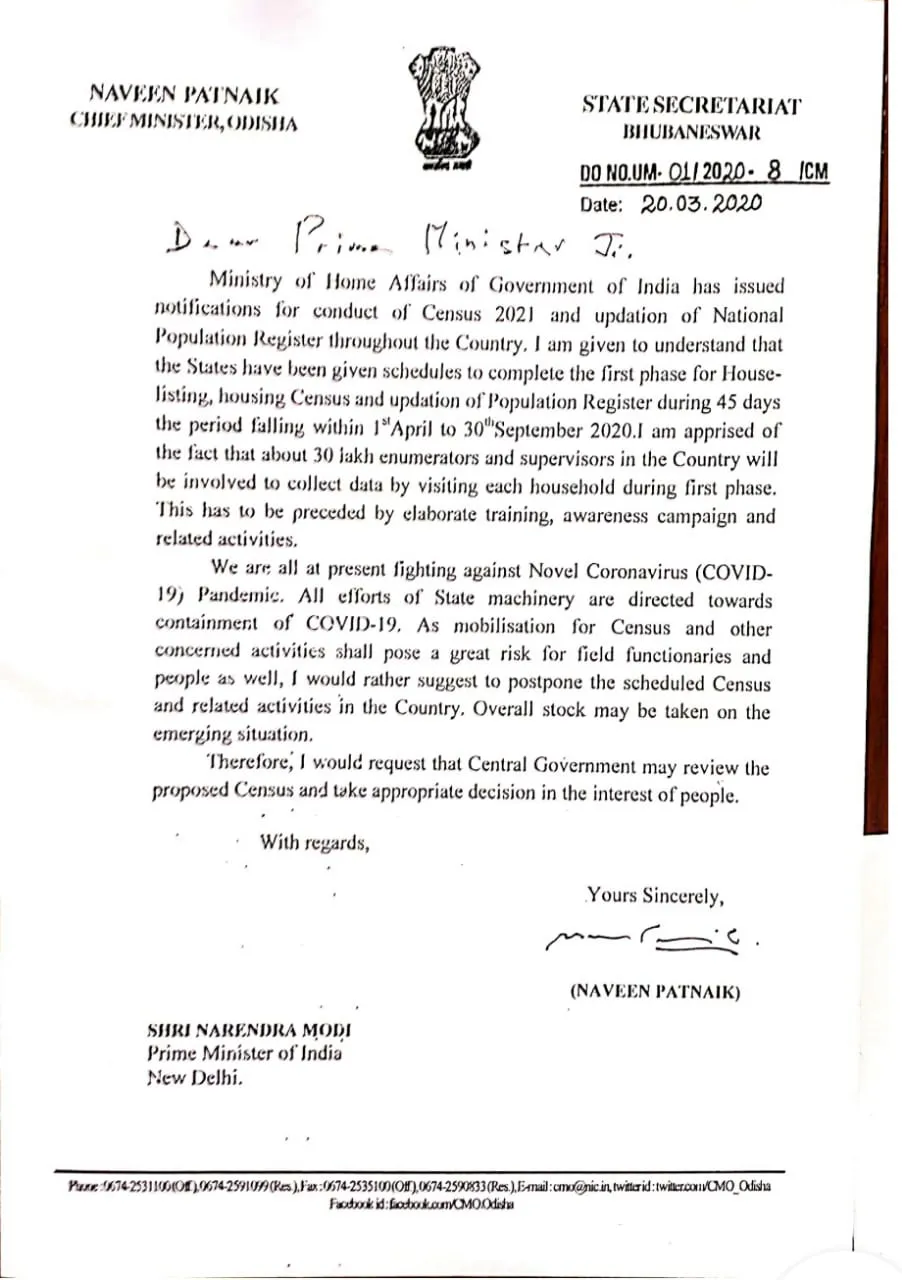 NAVEEN PATNAIK
CHIEF MINISTER, ODISHA
STATE SECRETARIAT
BHUBANESWAR
DO NO.UM- 01/2020- 8 /CM
Date: 20.03.2020
Dear Prime Minister Ji.
Ministry of Home Affairs of Government of India has issued
notifications for conduct of Census 2021 and updation of National
Population Register throughout the Country. I am given to understand that
the States have been given schedules to complete the first phase for House-
listing, housing Census and updation of Population Register during 45 days
the period falling within 1st April to 30th September 2020.I am apprised of
the fact that about 30 lakh enumerators and supervisors in the Country will
be involved to collect data by visiting each household during first phase.
This has to be preceded by elaborate training, awareness campaign and
related activities.
We are all at present fighting against Novel Coronavirus (COVID-
19) Pandemic. All efforts of State machinery are directed towards
containment of COVID-19. As mobilisation for Census and other
concerned activities shall pose a great risk for field functionaries and
people as well, I would rather suggest to postpone the scheduled Census
and related activities in the Country. Overall stock may be taken on the
emerging situation.
Therefore, I would request that Central Government may review the
proposed Census and take appropriate decision in the interest of people.
With regards,
Yours Sincerely,
(NAVEEN PATNAIK)
SHRI NARENDRA MODI
Prime Minister of India
New Delhi.
Phone :0674-2531100(Off.),0674-2591099(Res.),Fax :0674-2535100(Off),0674-2590833(Res.),E-mail : cmo@nic.in, twitter id : twitter.com/CMO_Odisha
Facebook id : facebook.com/CMO.Odisha